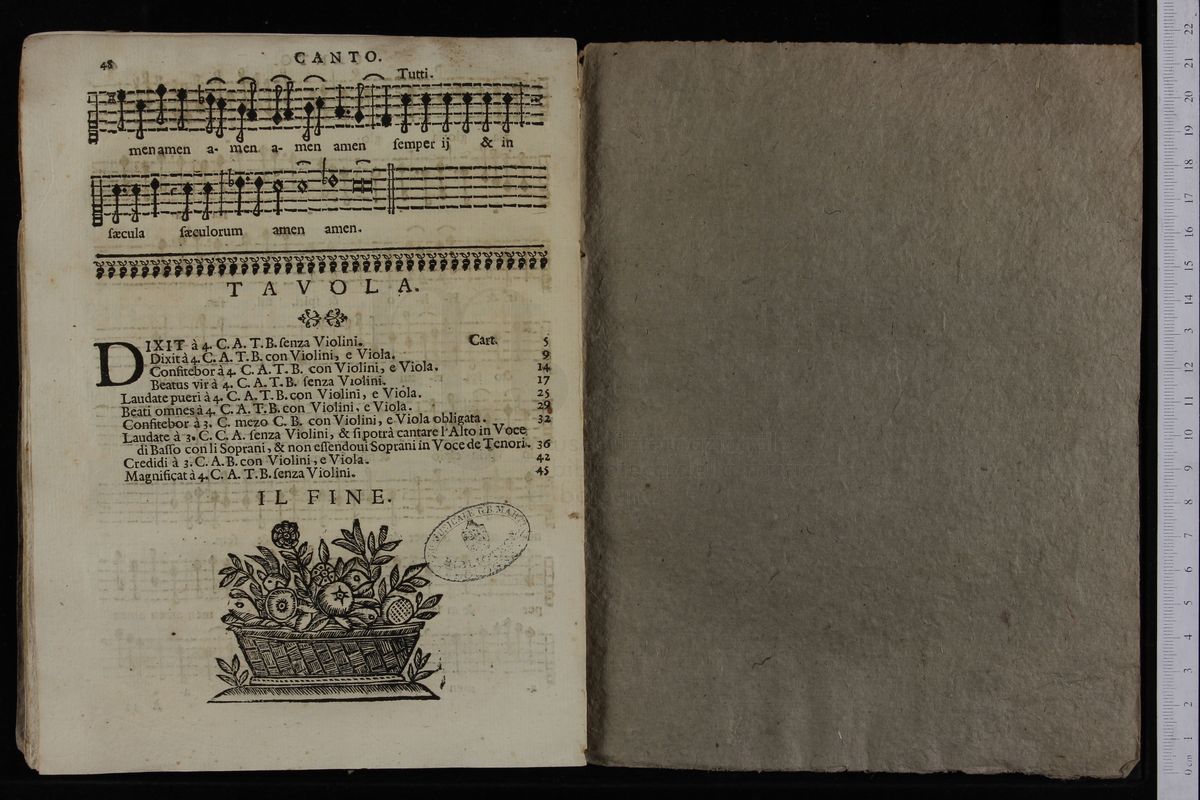 48
CANTO.
Tutti.
men amen a- men a- men amen ſemper ij & in
ſæcula ſæculorum amen amen.
TAVOLA.
DIXIT à 4. C. A. T. B. ſenza Violini. Cart. 5
Dixit à 4. C. A. T. B. con Violini, e Viola. 9
Confitebor à 4. C. A. T. B. con Violini, e Viola. 14
Beatus vir à 4. C. A. T. B. ſenza Violini. 17
Laudate pueri à 4. C. A. T. B. con Violini, e Viola. 25
Beati omnes à 4. C. A. T. B. con Violini, e Viola. 29
Confitebor à 3. C. mezo C. B. con Violini, e Viola obligata. 32
Laudate à 3. C. C. A. ſenza Violini, & ſi potrà cantare l'Alto in Voce
di Baſſo con li Soprani, & non eſſendoui Soprani in Voce de Tenori. 36
Credidi à 3. C. A. B. con Violini, e Viola. 42
Magnificat à 4. C. A. T. B. ſenza Violini. 45
IL FINE.
MUSICALE G. B.
0 cm 1 2 3 4 5 6 7 8 9 10 11 12 13 14 15 16 17 18 19 20 21 22